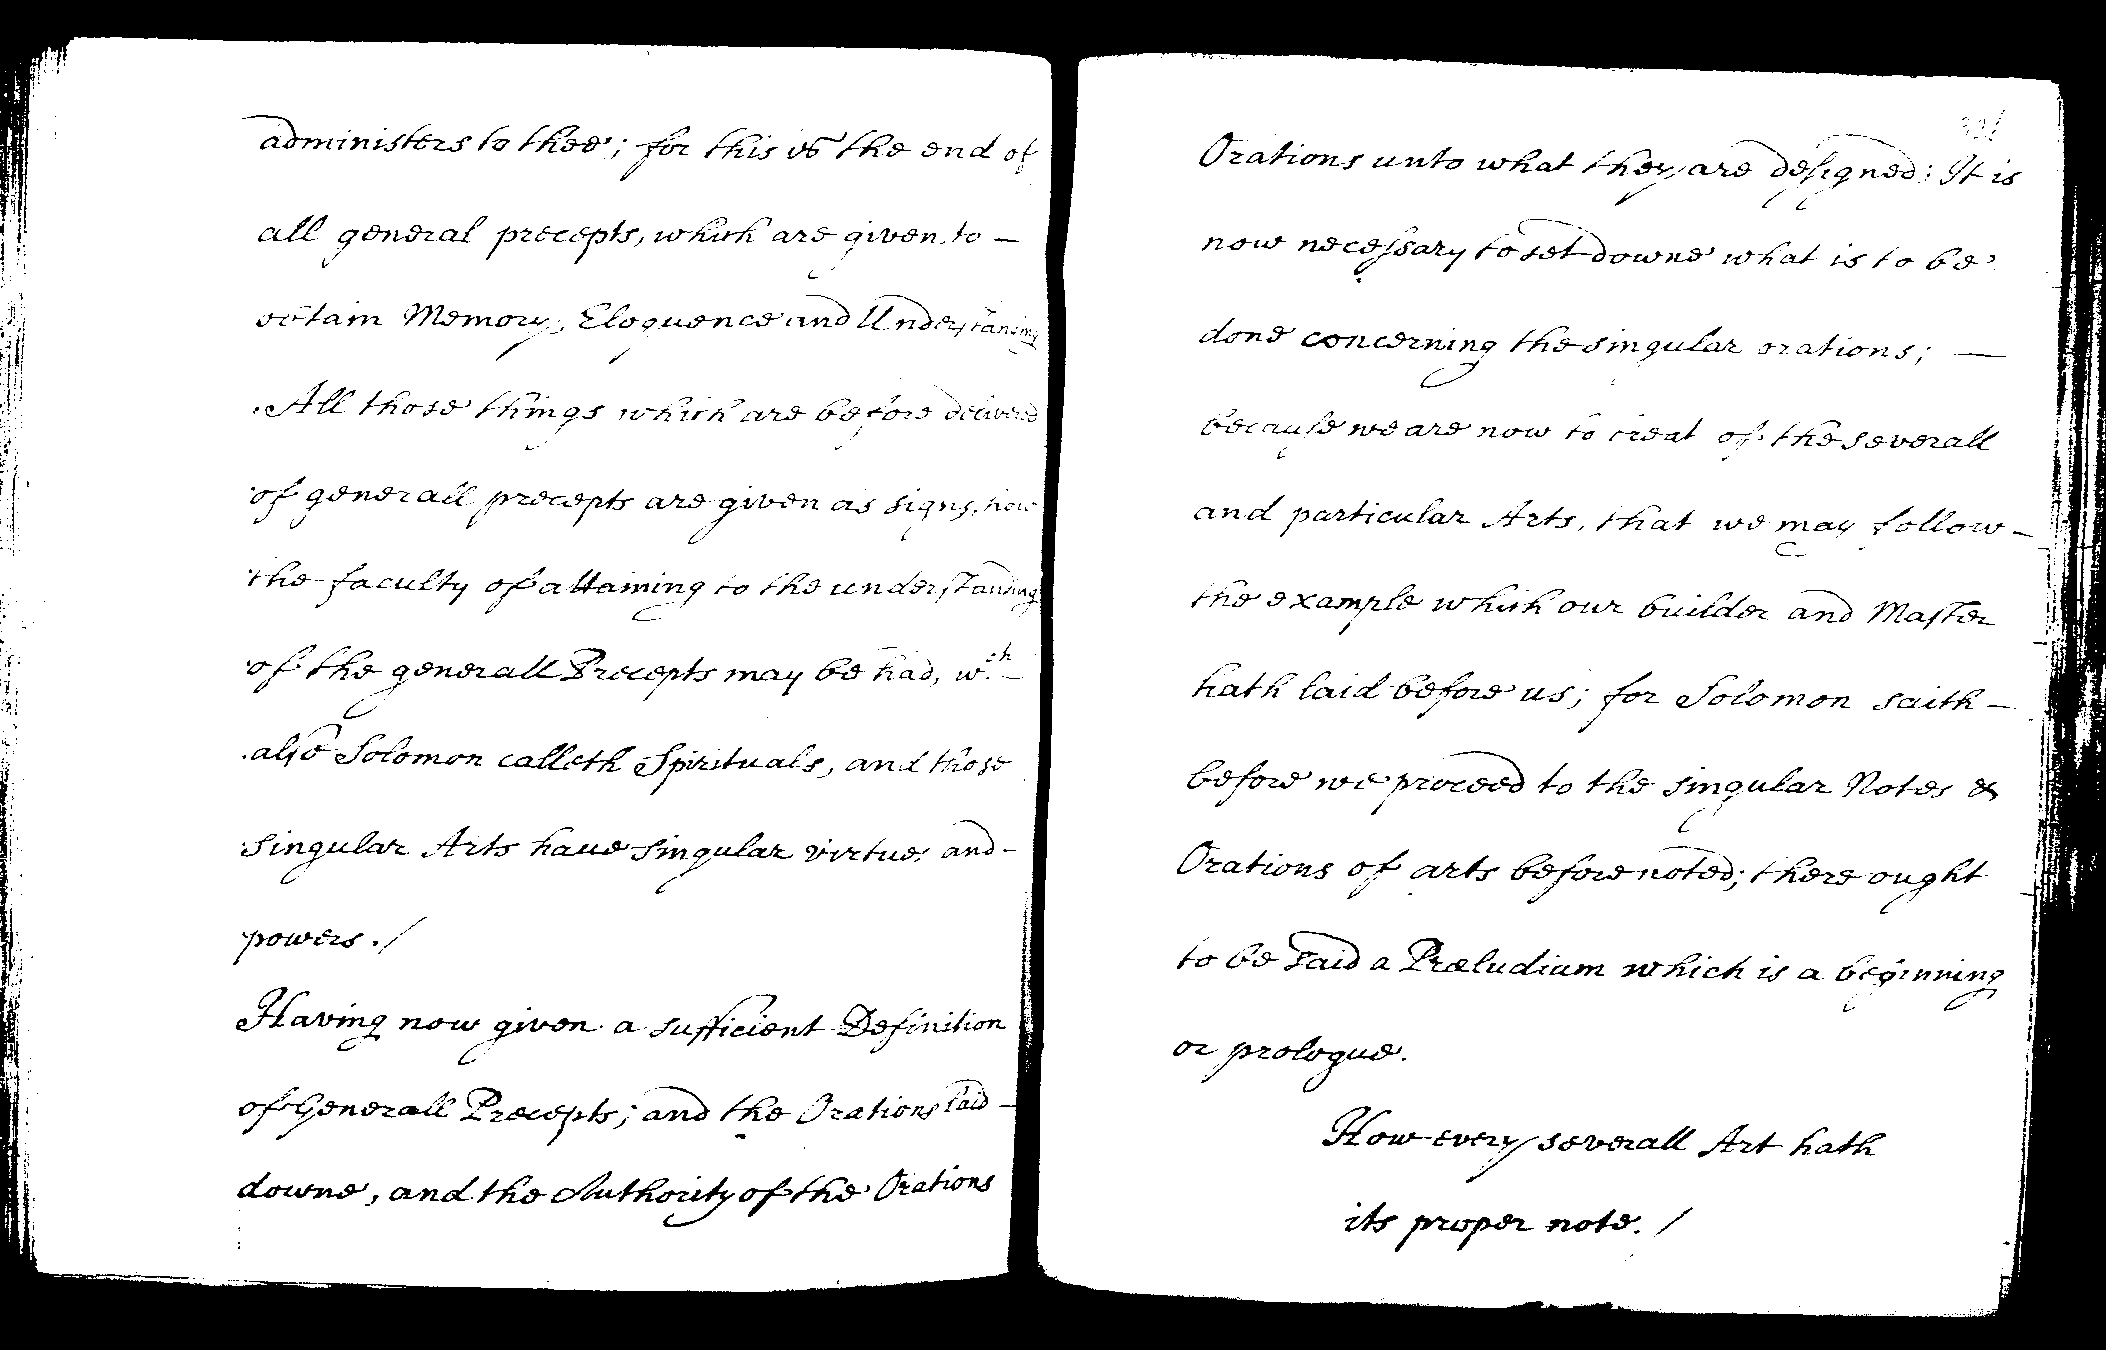 administers to thee; for this is the end of
all general precepts, which are given to —
obtain Memory, Eloquence and Understaning
All those things which are before delivered
of generall precepts are given as signs, how
the faculty of attaining to the understanding
of the generall Precepts may be had, w.ch —
also Solomon calleth Spirituals, and those
singular Arts haue singular virtue and -
powers. /
Having now given a sufficient Definition
of Generall Precepts; and the Orations laid —
downe, and the Authority of the Orations
Orations unto what they are deſigned: It is
now neceſsary to set downe what is to be
done concerning the singular orations; —
becauſe we are now to treat of the severall
and particular Arts, that we may follow -
the example which our builder and Maſter
hath laid before us; for Solomon saith -
before we proceed to the singular Notes &
Orations of arts before noted; there ought
to be said a Præludium which is a beginning
or prologue.
How every severall Art hath
its proper note. /